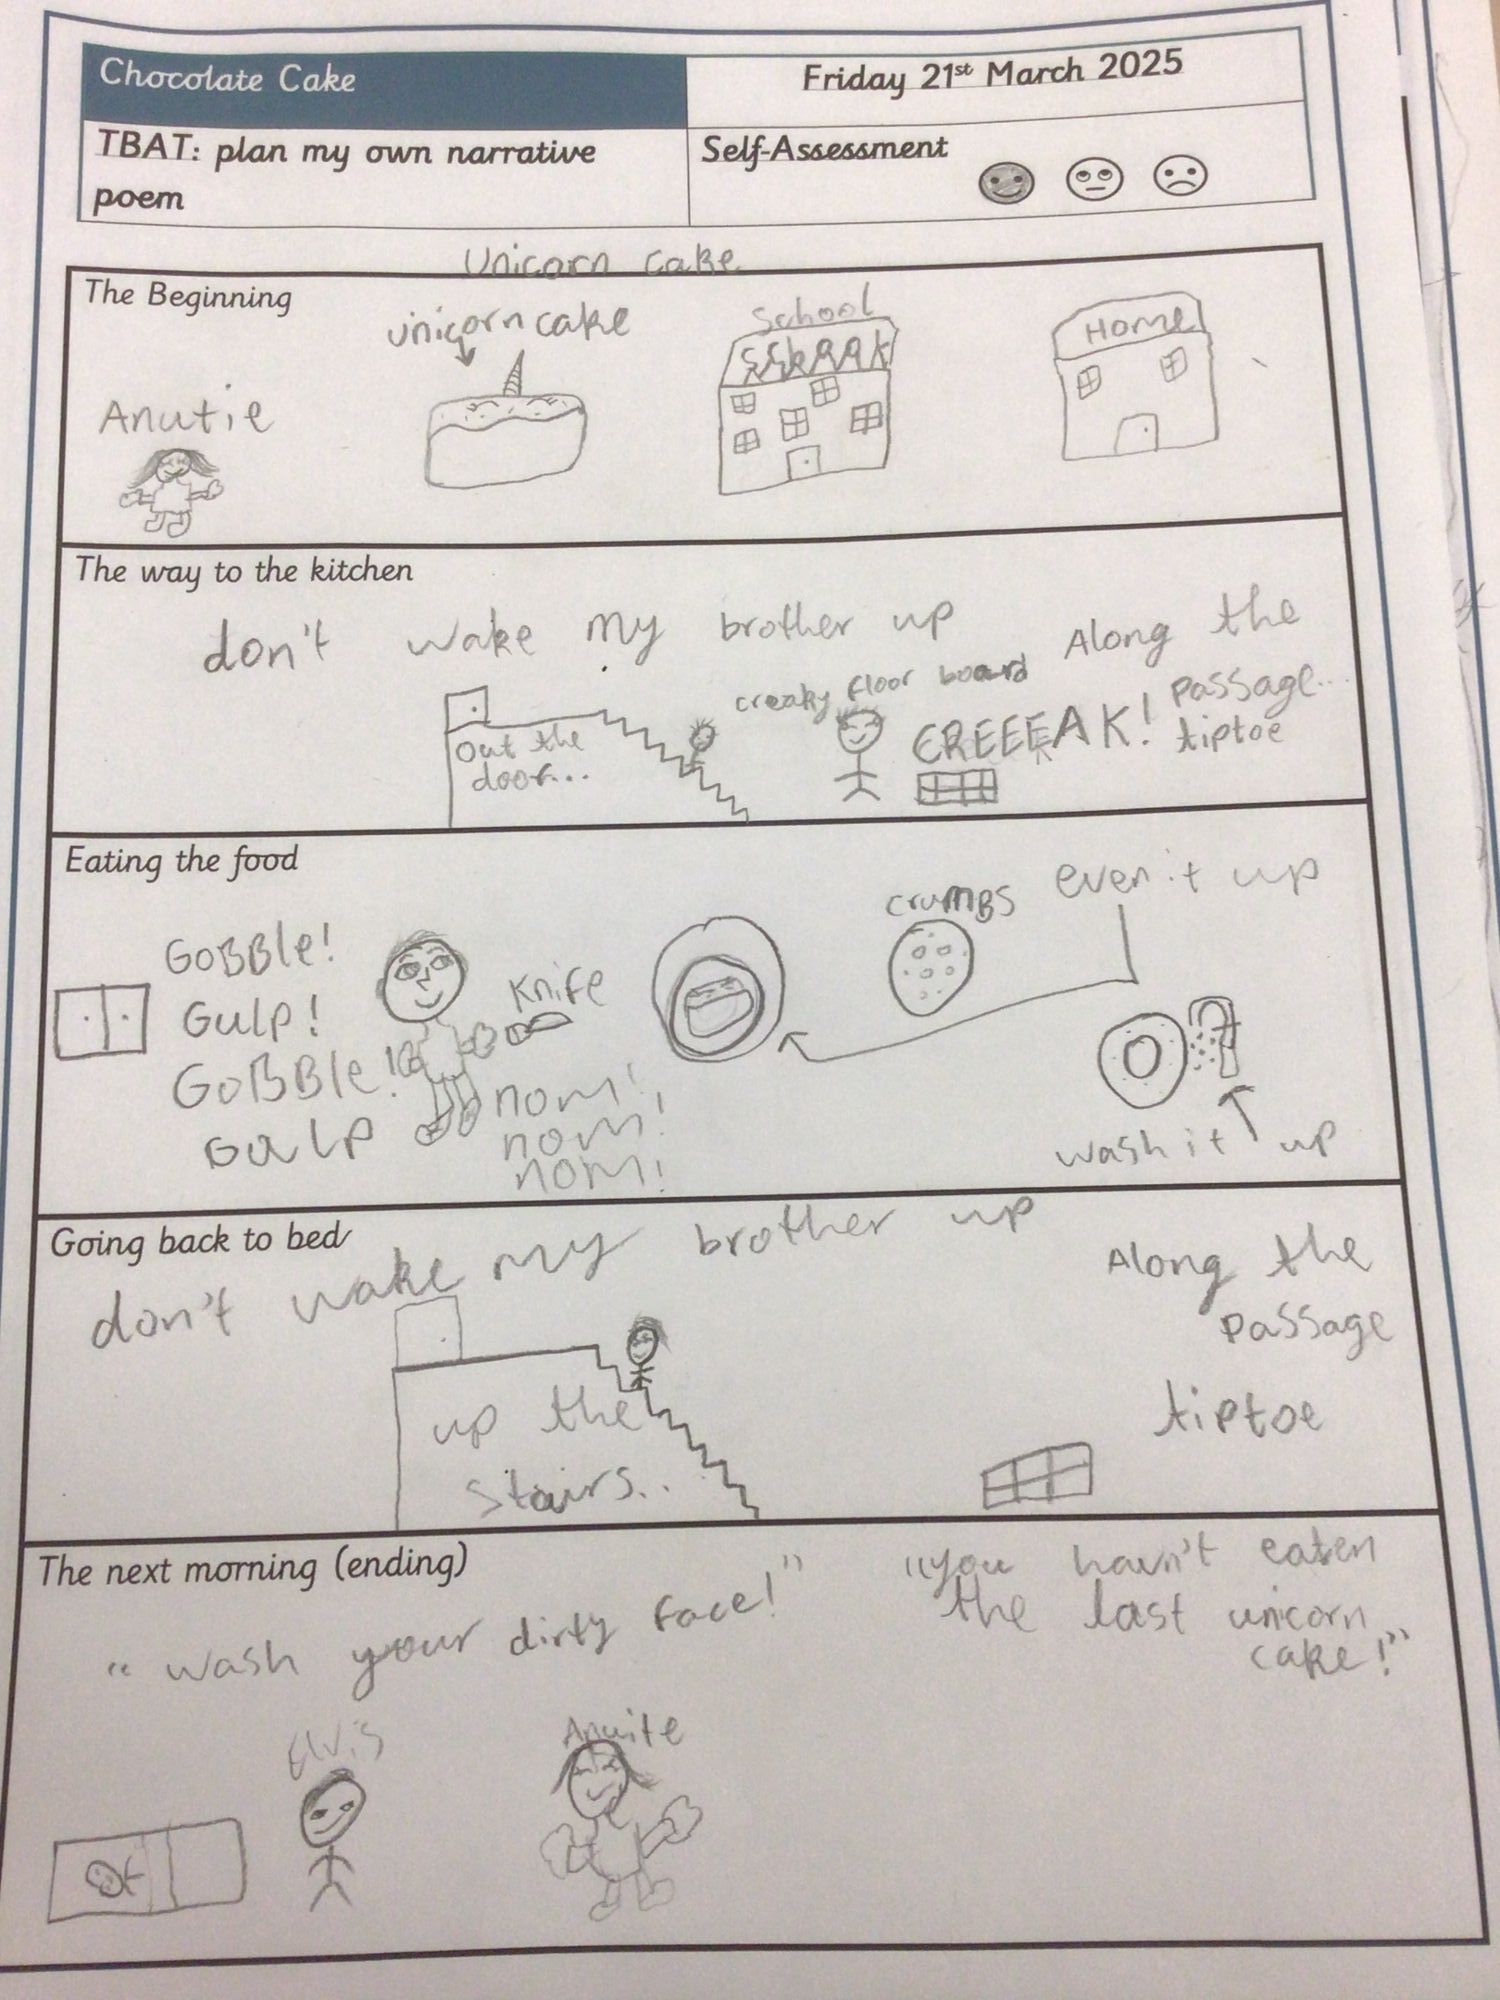 Chocolate Cake
Friday 21st March 2025
TBAT: plan my own narrative
poem
Self-Assessment
Unicorn cake
The Beginning
Anutie
unicorn cake
School
Home
The way to the kitchen
don't wake my brother up
out the
door...
creaky floor board
CREEEEAK!
Along the
passage...
tiptoe
Eating the food
GoBBle!
Gulp!
GoBBle!
Gulp
knife
nom!
nom!
nom!
crumBs
even it up
wash it up
Going back to bed
don't wake my brother up
up the
stairs..
Along the
passage
tiptoe
The next morning (ending)
"wash your dirty face!"
"you havn't eaten
the last unicorn
cake!"
Elvis
Anuite